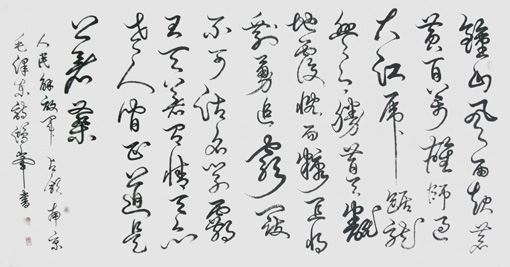 鐘山風雨起蒼
黃百萬雄師過
大江虎踞龍
盤今勝昔天翻
地覆慨而慷宜將
剩勇追窮寇
不可沽名學霸
王天若有情天亦
老人間正道是
滄桑
人民解放軍占領南京
毛澤東詩書